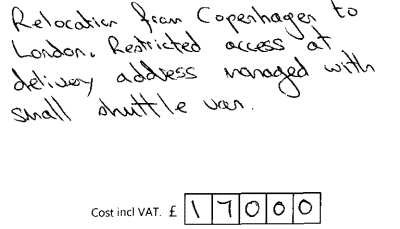 Relocation from Copenhagen to
London. Restricted access at
delivery address managed with
small shuttle van.
Cost incl VAT. £ 17000